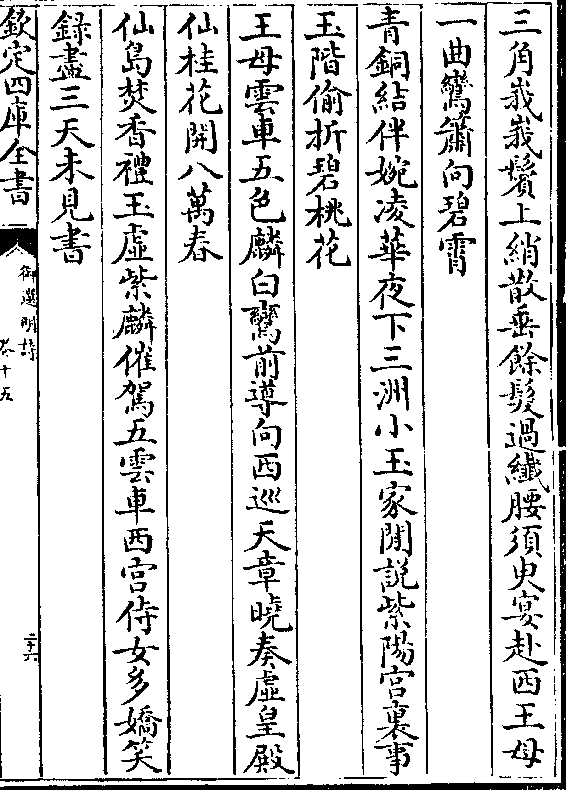 三角峩峩鬢上綃散垂餘髮過纎腰須臾宴赴西王母
一曲鸞簫向碧霄
青銅結伴婉凌華夜下三洲小玉家閒説紫陽宮裏事
玉階偷折碧桃花
王母雲車五色麟白鸞前導向西巡天章曉奏虛皇殿
仙桂花開八萬春
仙島焚香禮玉虛紫麟催駕五雲車西宮侍女多嬌笑
録盡三天未見書
欽定四庫全書
御選明詩
卷十五
二十六